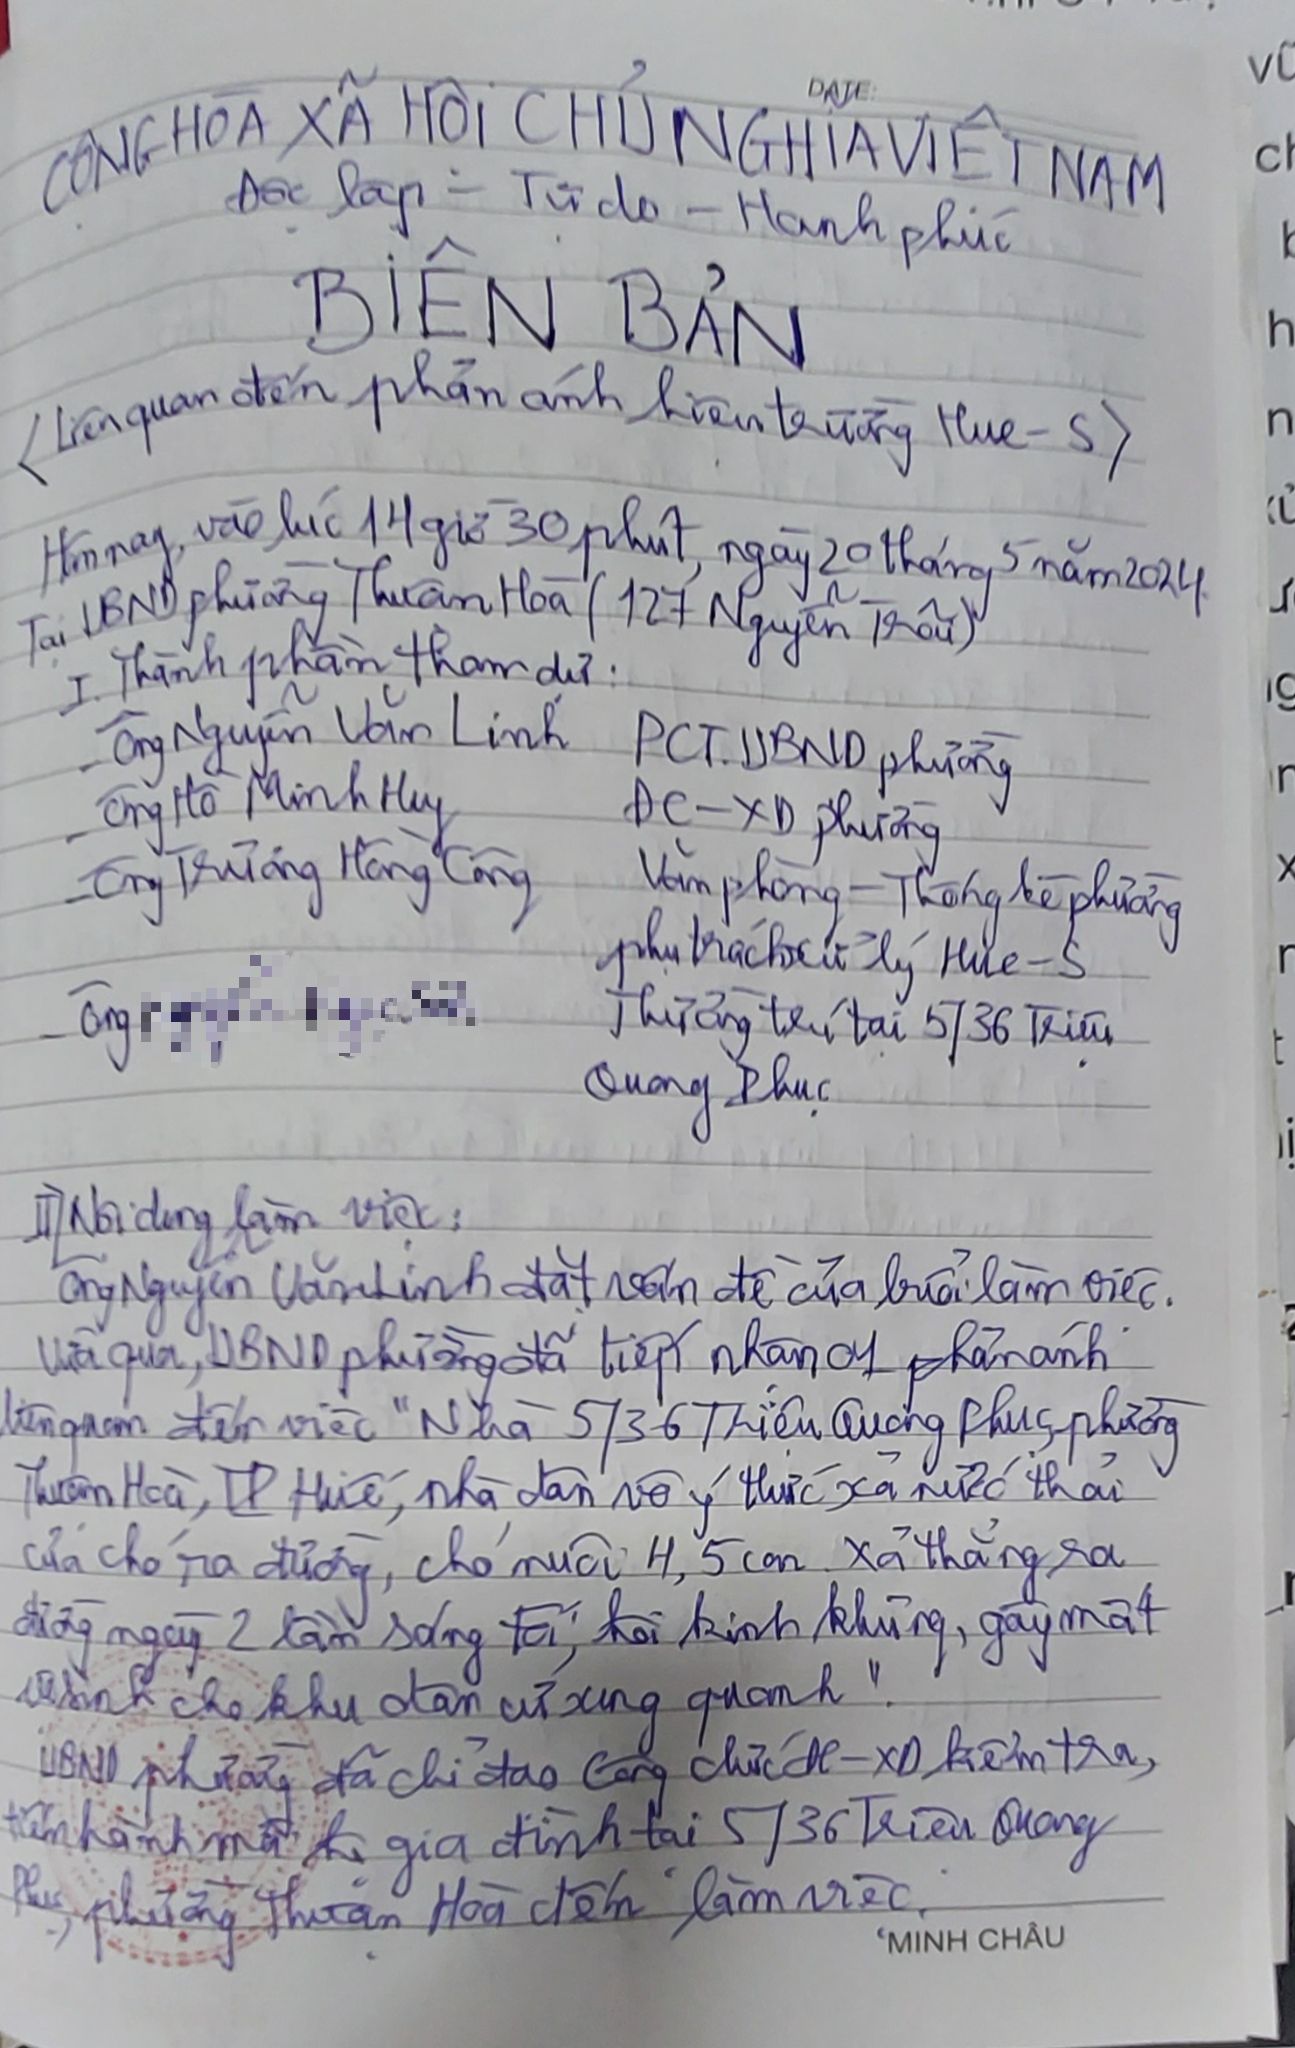 DATE:
CỘNG HÒA XÃ HỘI CHỦ NGHĨA VIỆT NAM
Độc lập - Tự do - Hạnh phúc
BIÊN BẢN
<Liên quan đến phản ánh hiện trường Hue-S>
Hôm nay, vào lúc 14 giờ 30 phút, ngày 20 tháng 5 năm 2024.
Tại UBND phường Thuận Hoà (127 Nguyễn Trãi)
I. Thành phần tham dự:
- Ông Nguyễn Văn Linh PCT.UBND phường
- Ông Hồ Minh Huy ĐC-XD phường
- Ông Trương Hồng Công Văn phòng - Thống kê phường
phụ trách xử lý Hue-S
- Ông Thường trú tại 5/36 Triệu
Quang Phục
II/ Nội dung làm việc:
Ông Nguyễn Văn Linh đặt vấn đề của buổi làm việc.
Vừa qua, UBND phường đã tiếp nhận 01 phản ánh
liên quan đến việc "Nhà 5/36 Triệu Quang Phục, phường
Thuận Hoà, TP Huế, nhà dân vô ý thức xả nước thải
của chó ra đường, chó nuôi 4, 5 con xả thẳng ra
đường ngày 2 lần sáng tối, hôi kinh khủng, gây mất
vệ sinh cho khu dân cư xung quanh".
UBND phường đã chỉ đạo Công chức ĐC-XD kiểm tra,
tiến hành mời hộ gia đình tại 5/36 Triệu Quang
Phục, phường Thuận Hoà đến làm việc.
MINH CHÂU